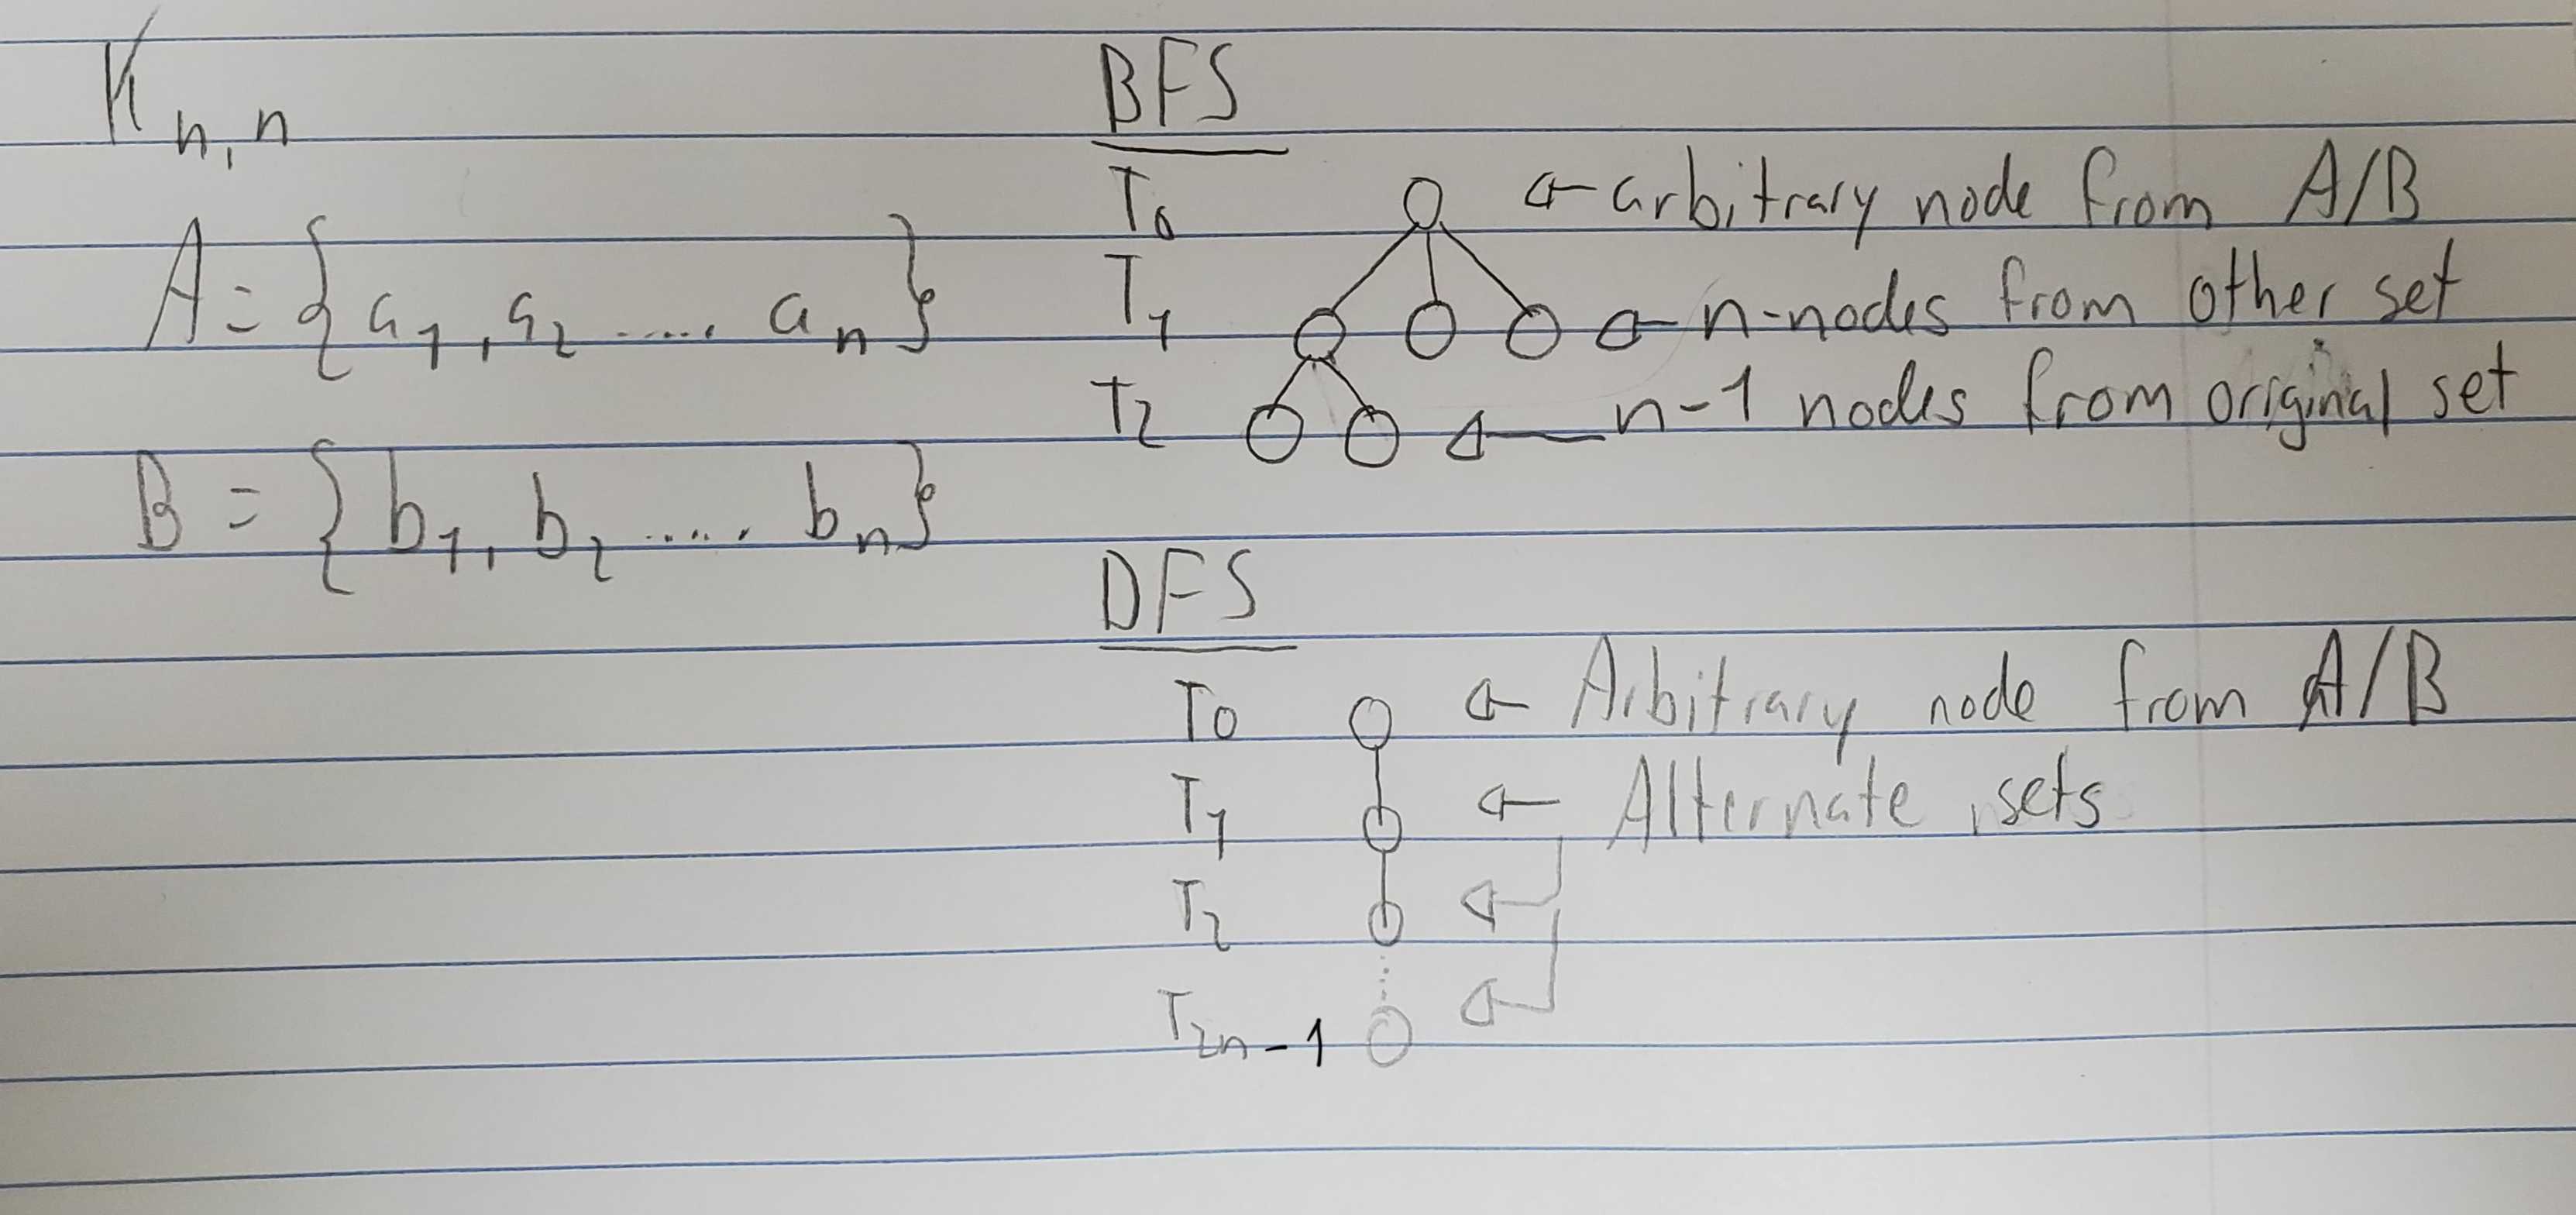 K n,n
A = {a1, a2 ..... an}
B = {b1, b2 ..... bn}
BFS
T0 ← arbitrary node from A/B
T1 ← n-nodes from other set
T2 ← n-1 nodes from original set
DFS
T0 ← Arbitrary node from A/B
T1 ← Alternate sets
T2 ←
T2n-1 ←